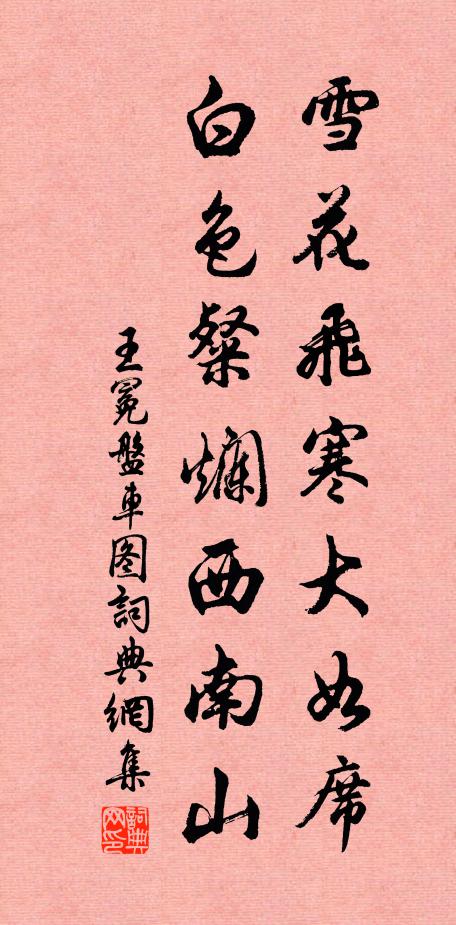 雪花飛寒大如席
白色粲爛西南山
王冕盤車图詞典網集
詞典网印